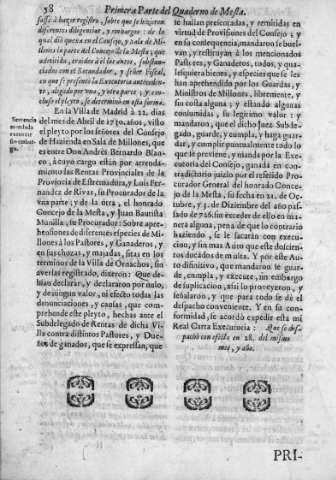 58 Primera Parte del Quaderno de Mesta.
passe à hazer registro, sobre que se hizieron
diferentes diligencias, y embargos: de lo
qual diò quexa en el Consejo, y Sala de Mi-
llones la parte del Concejo de la Mesta; que
admitida, traidos à èl los autos, substan-
ciados con el Arrendador, y señor Fiscal,
en que se presentò la Executoria anteceden-
te, alegado por vna, y otra parte; y con-
cluso el pleyto, se determinò en esta forma.
En la Villa de Madrid à 22. dias
del mes de Abril de 1730. años, visto
el pleyto por señores del Consejo
de Hazienda en Sala de Millones, que
es entre Don Andrès Bernardo Blan-
co, à cuyo cargo estàn por arrenda-
miento las Rentas Provinciales de la
Provincia de Estremadura, y Luis Fer-
nandez de Rivas, su Procurador de la
vna parte; y de la otra, el honrado
Concejo de la Mesta, y Juan Bautista
Munilla, su Procurador: Sobre apre-
hensiones de diferentes especies de Mi-
llones à los Pastores, y Ganaderos, y
en sus chozas, y majadas, sitas en los
terminos de la Villa de Ornachos, sin
averlas registrado, dixeron: Que de-
bian declarar, y declararon por nulo,
y de ningun valor, ni efecto todas las
denunciaciones, y causas, que com-
prehende este pleyto, hechas ante el
Subdelegado de Rentas de dicha Vi-
lla contra distintos Pastores, y Due-
ños de ganados, que se expressan, que
Sentencia
se hallan presentadas, y remitidas en
virtud de Provisiones del Consejo; y
en su consequencia, mandaron se buel-
van, y restituyan à los mencionados
Pastores, y Ganaderos, todos, y qua-
lesquiera bienes, y especies que se les
han aprehendido por los Guardas, y
Ministros de Millones, libremente, y
sin costa alguna; y estando algunas
consumidas, su legitimo valor: y
mandaron, que el dicho Juez Subde-
gado, guarde, y cumpla, y haga guar-
dar, y cumplir puntualmente todo lo
que se previene, y manda por la Exe-
cutoria del Consejo, ganada en con-
tradictorio juizio por el referido Pro-
curador General del honrado Conce-
jo de la Mesta, su fecha en 21. de Octu-
bre, y 3. de Diziembre del año pas-
sado de 726. sin exceder de ello en ma-
nera alguna, pena de que lo contrario
haziendo, se le sacaràn con execu-
cion, y sin mas Auto que este doscien-
tos ducados de multa. Y por este Au-
to difinitivo, que mandaron se guar-
de, cumpla, y execute, sin embargo
de suplicacion, assi lo proveyeron, y
señalaron, y que para todo se dè el
despacho conveniente. Y en su con-
formidad, se acordò expedir esta mi
Real Carta Executoria: Que se des-
pachò con efecto en 28. del mismo
mes, y año.
PRI-